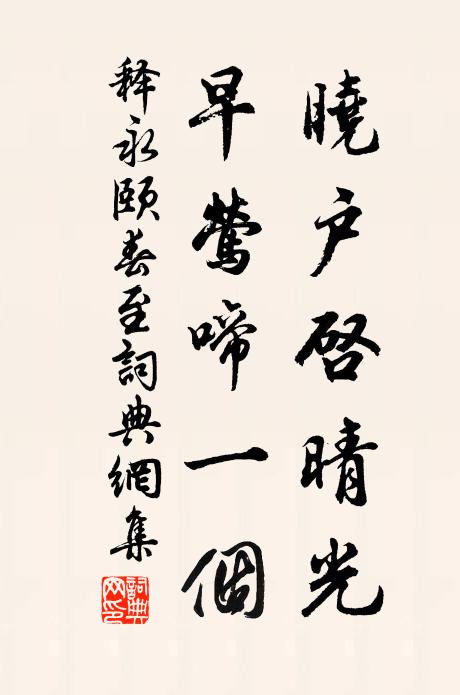 曉户啓晴光
早鶯啼一個
释永頤春至詞典網集
詞典网印